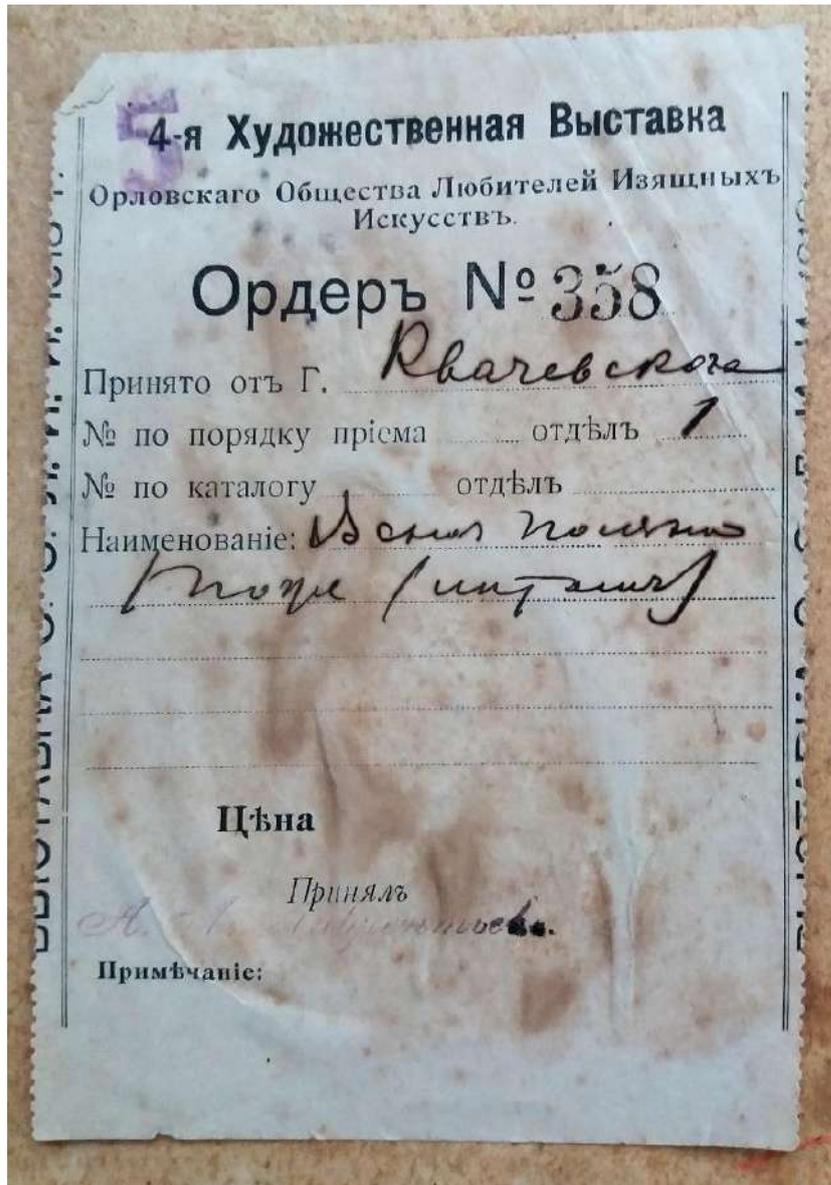 5
4-я Художественная Выставка
Орловскаго Общества Любителей Изящныхъ
Искусствъ.
Ордеръ № 358
Принято отъ Г. Квачевскога
№ по порядку пріема отдѣлъ 1
№ по каталогу отдѣлъ
Наименованіе: Ясная поляна
Цѣна
Принялъ
А.
Примѣчаніе:
ВЫСТАВКА О. О. Л. И. И.